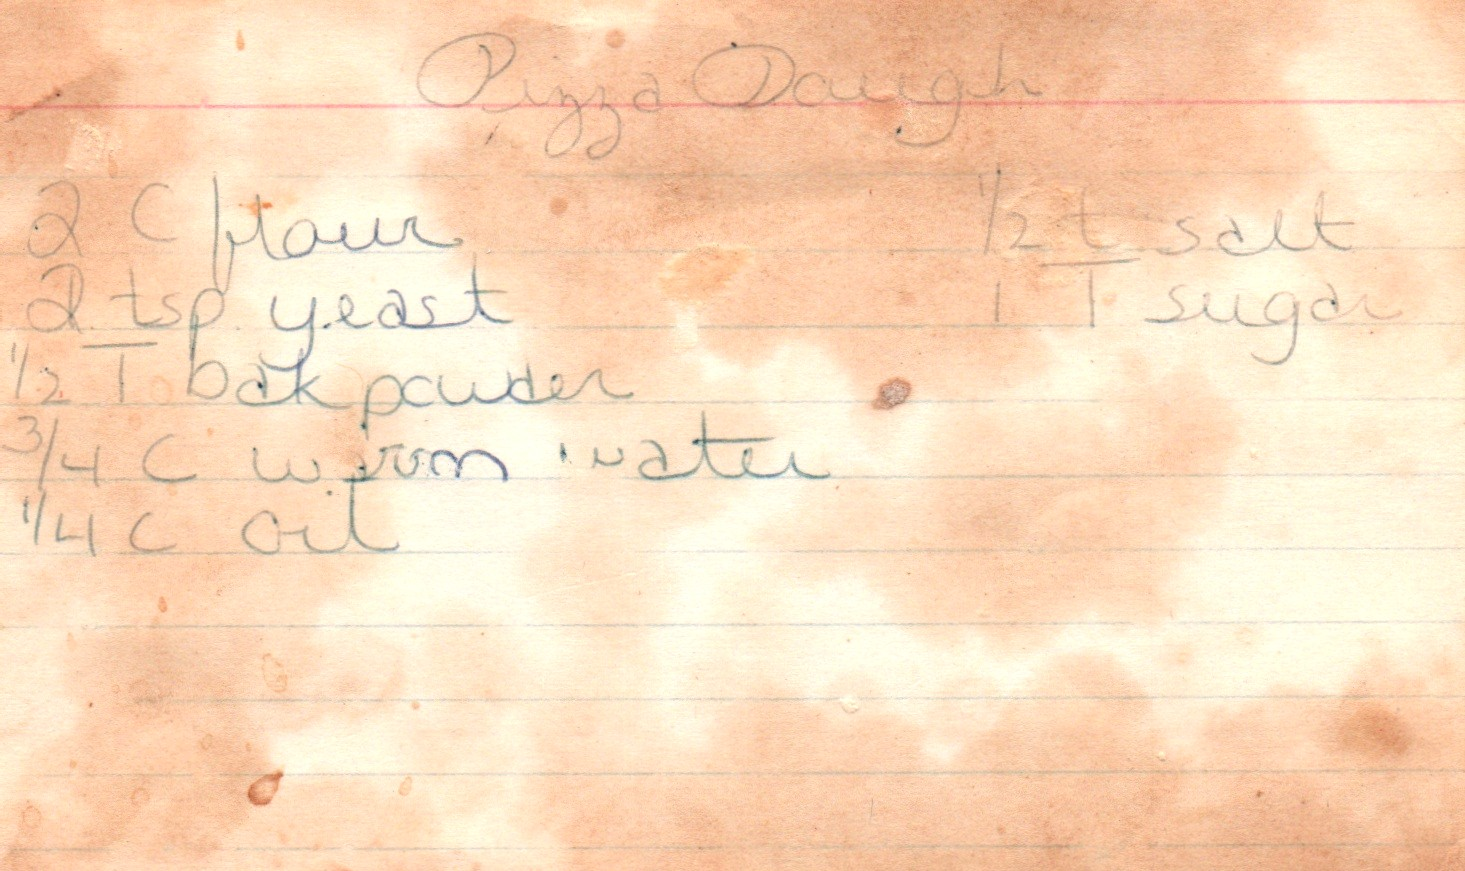 Pizza Dough
2 C flour
2 tsp yeast
1/2 T bak powder
3/4 C warm water
1/4 C oil
1/2 t salt
1 T sugar